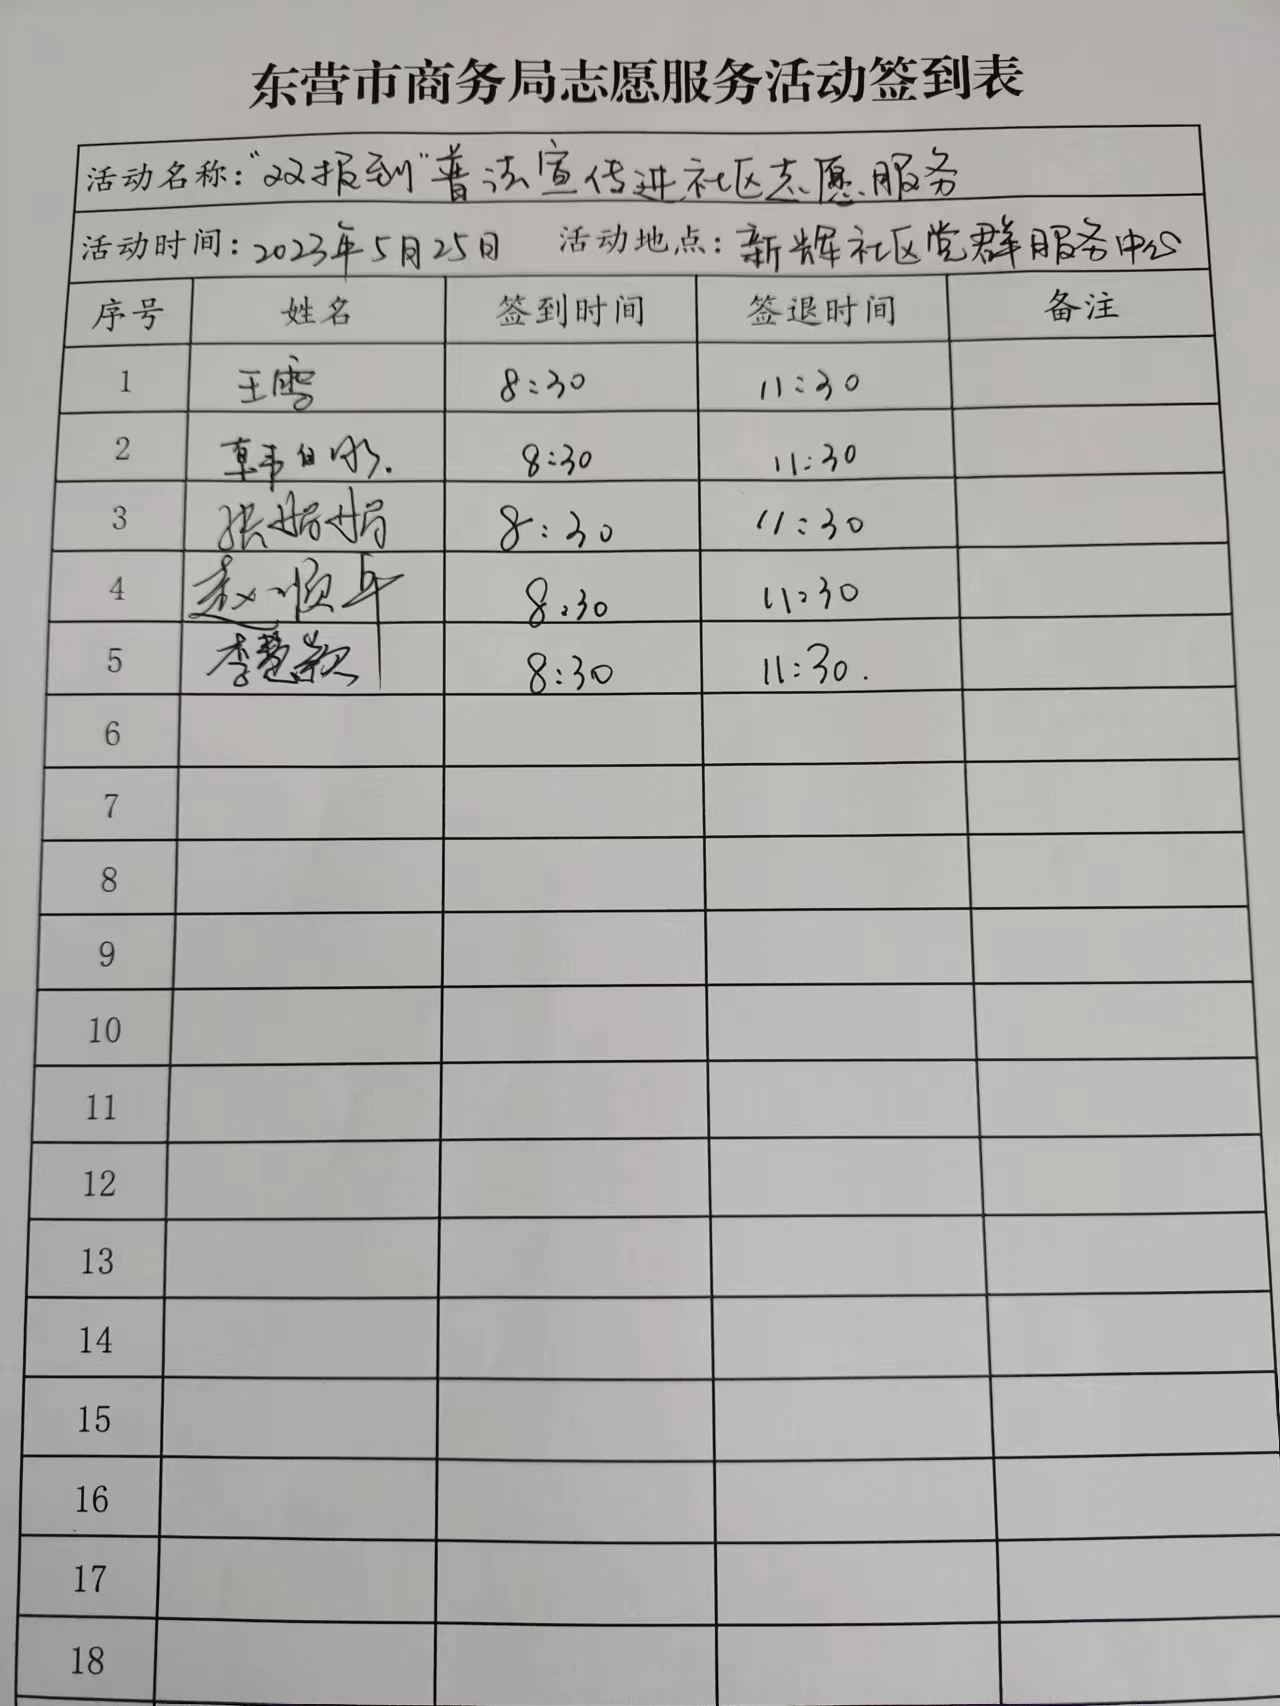 东营市商务局志愿服务活动签到表
活动名称：“双报到”普法宣传进社区志愿服务
活动时间：2023年5月25日 活动地点：新辉社区党群服务中心
序号 姓名 签到时间 签退时间 备注
1 王雪 8:30 11:30
2 8:30 11:30
3 张娟娟 8:30 11:30
4 赵顺年 8:30 11:30
5 李慧颖 8:30 11:30.
6
7
8
9
10
11
12
13
14
15
16
17
18